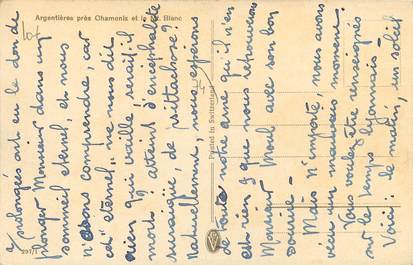 Argentières près Chamonix et le Mt. Blanc
prolongés ont eu le don de
plonger Monsieur dans un
sommeil éternel, et nous
n'osons comprendre, car
cet "éternel" ne nous dit
rien qui vaille, serait-il
mort? atteint d'encéphalite
de psittachose?
Naturellement, nous espérons
de toute notre âme qu'il n'en
est rien & que nous retrouverons
Monsieur Moul avec son bon
sourire -
Mais n'importe, nous avons
vécu un mauvais moment
Vous voulez être renseignés
sur le temps lyonnais -
Voici: de matin, un soleil
Printed in Switzerland
297/1